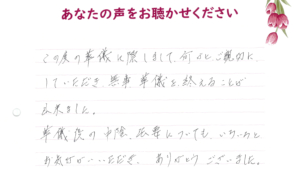 あなたの声をお聴かせください
この度の葬儀に際しまして、何かとご親切に
していただき無事葬儀を終えることが
出来ました。
葬儀後の中陰、法要についても、いろいろと
お気づかいいただき、ありがとうございました。